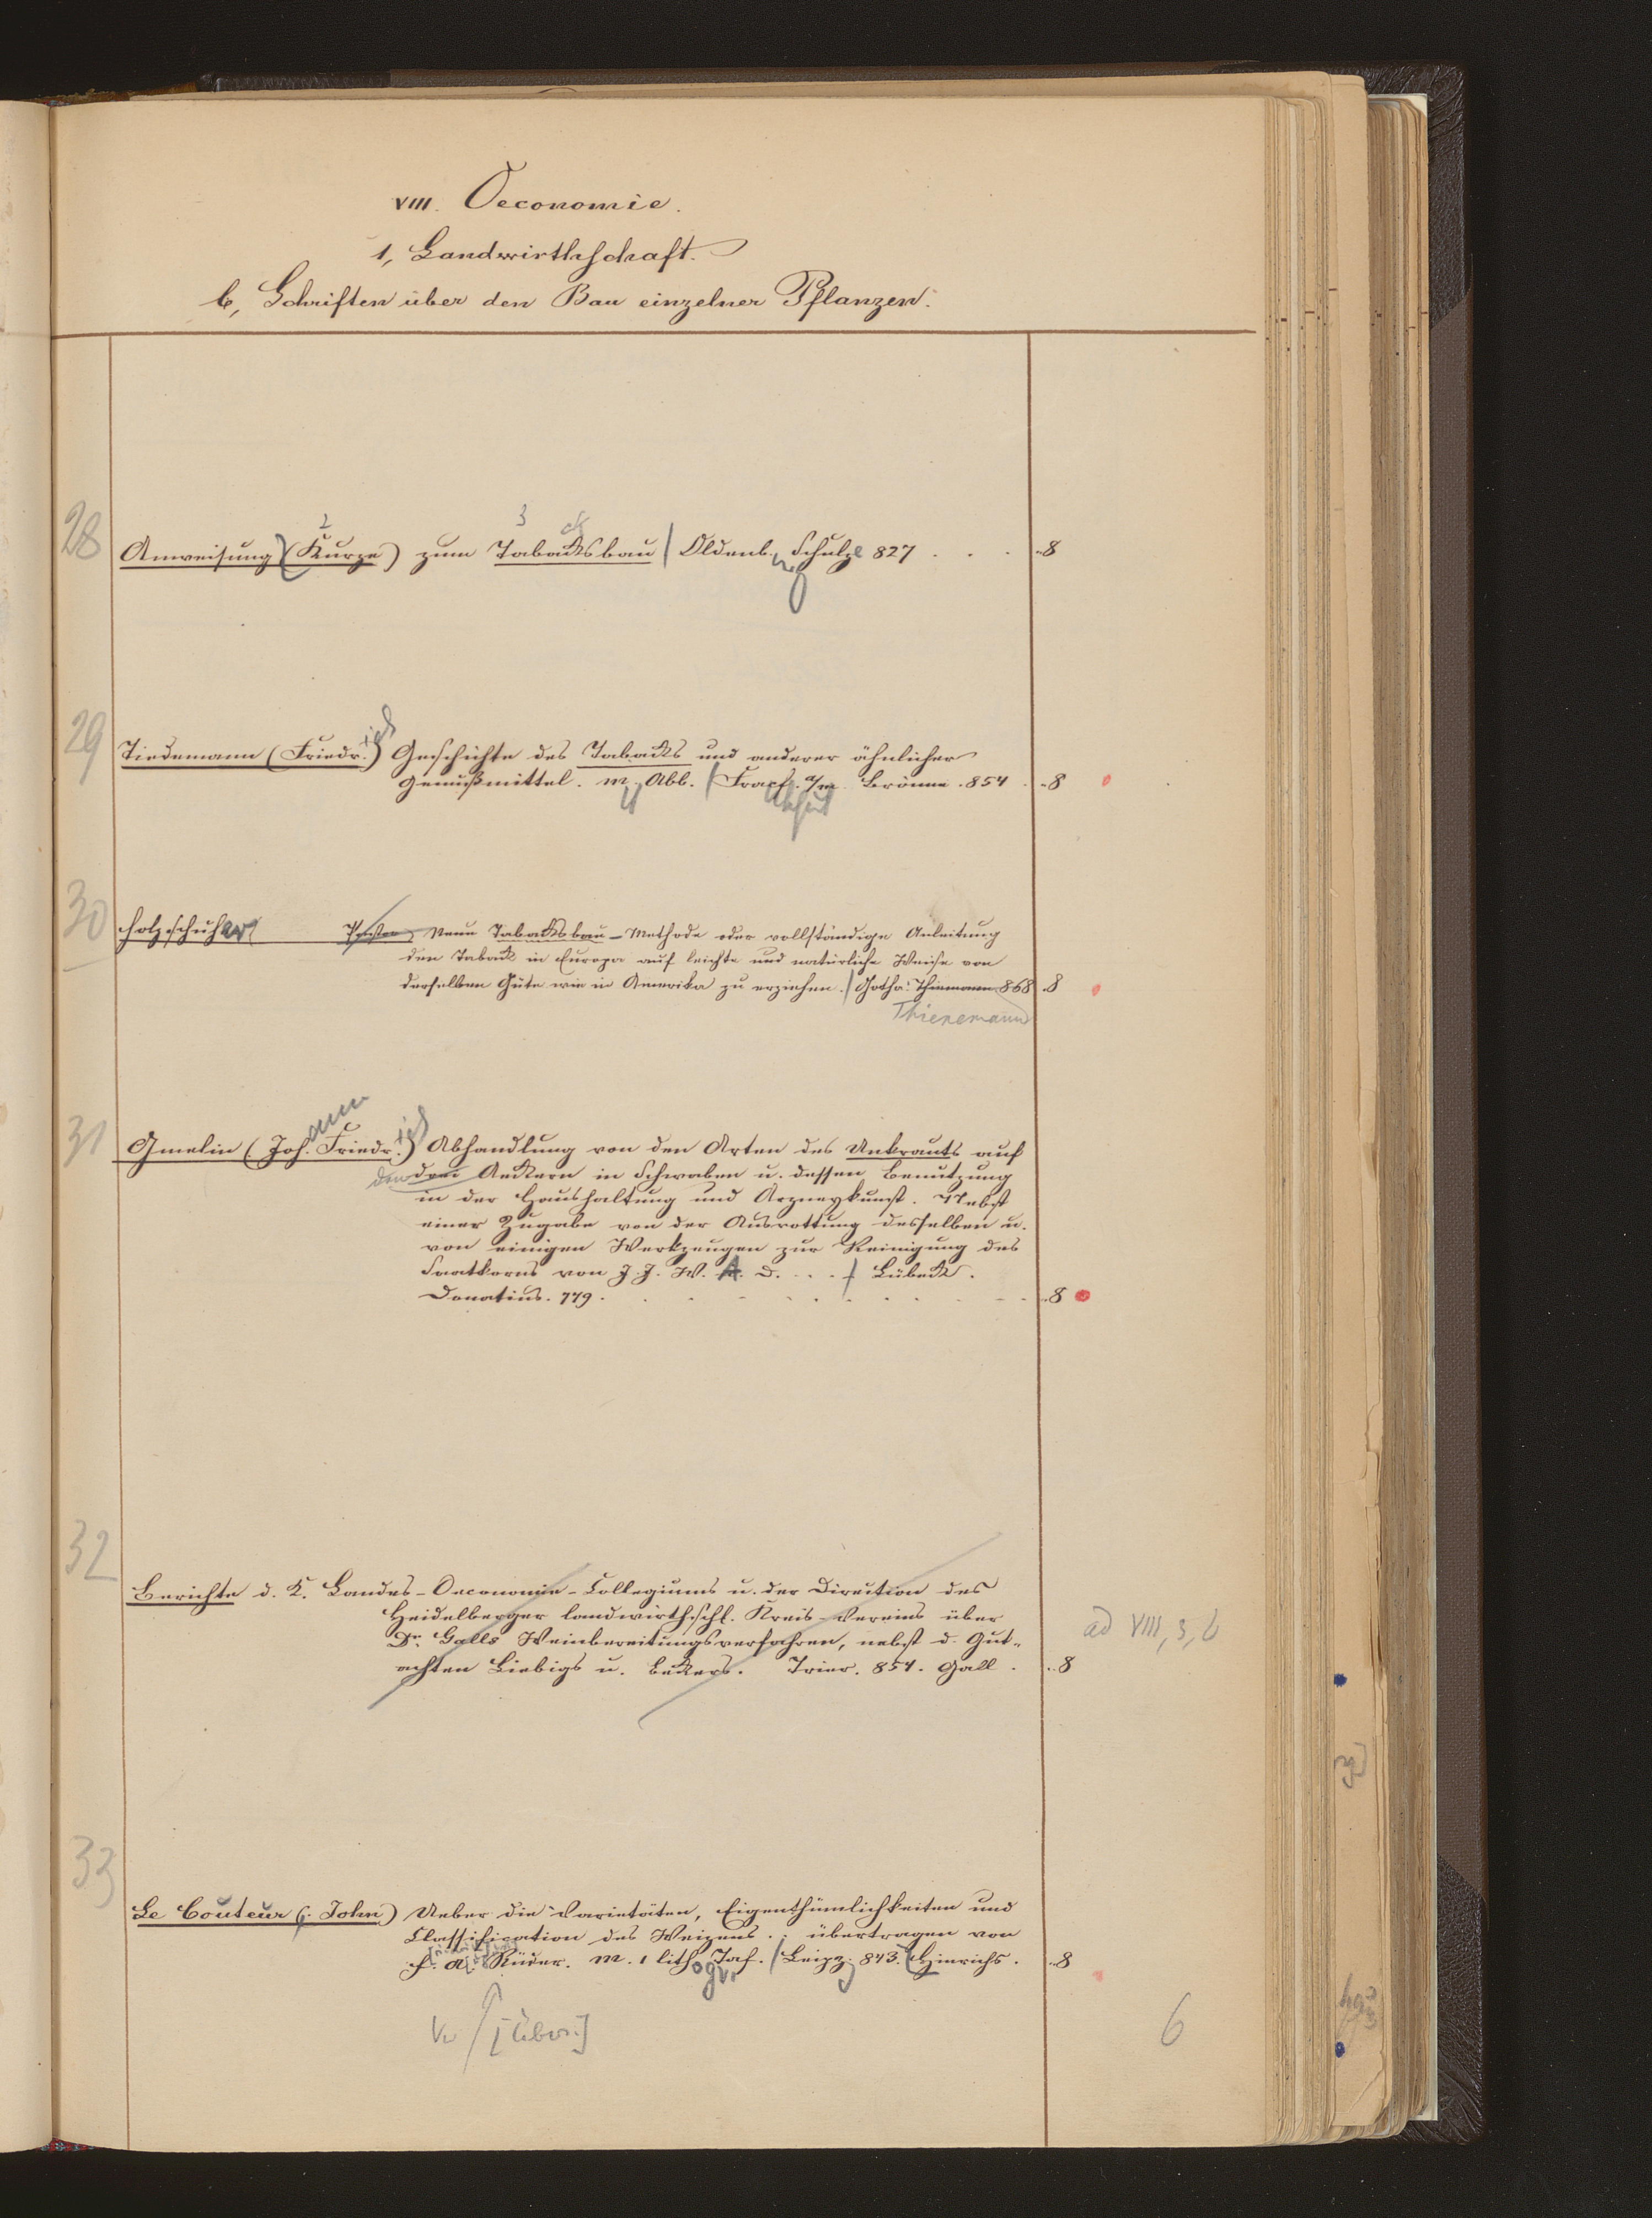 VIII. Oeconomie.
1, Landwirthschaft.
b, Schriften über den Bau einzelner Pflanzen.
2 3 ck
28 Anweisung (Kurze) zum Tabacksbau / Oldenb. Schulze 827 . . . 8
29 Tiedemann (Friedr.ich) Geschichte des Tabacks und anderer ähnlicher
Genußmittel. m. Abb. / Frankf. a/m. Brönner. 854 . 8
30 Holzschuher Neue Tabacksbau-Methode oder vollständige Anleitung
den Taback in Europa auf leichte und natürliche Weise von
derselben Güte wie in Amerika zu erziehen. / Gotha: Thiemann. 868 . 8
Thienemann
ann ich
31 Gmelin (Joh. Friedr.) Abhandlung von den Arten des Unkrauts auf
den Aeckern in Schwaben u. dessen Benutzung
in der Haushaltung und Arzneykunst. Nebst
einer Zugabe von der Ausrottung desselben u.
von einigen Werkzeugen zur Reinigung des
Saatkorns von J. J. W. A. D. . . . / Lübeck.
Donatius. 779 . 8
32
Berichte d. K. Landes-Oeconomie-Collegiums u. der Direction des
Heidelberger landwirthschl. Kreis-Vereins über
Dr. Galls Weinbereitungsverfahren, nebst d. Gut-
achten Liebigs u. Beckers. Trier. 854. Gall . 8
ad VIII, 3, b
33
Le Couteur (: John) Ueber die Varietäten, Eigenthümlichkeiten und
Classification des Weizens. : übertragen von
F. A. Rüder. m. 1 lithogr. Taf. / Leipz. 843. Hinrichs . 8
[Über.]
6